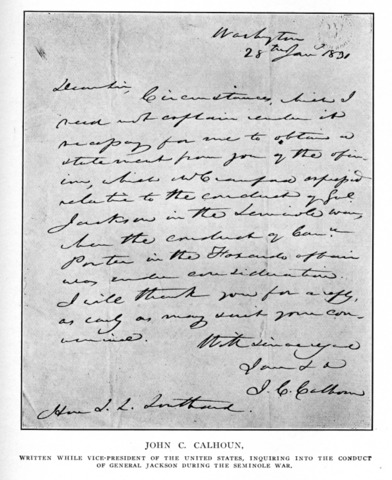 Washington
28th Jany 1831
Dear Sir,
Circumstances, which I
need not explain render it
necessary for me to obtain a
statement from you of the opin-
ion, which Mr Crawford expressed
relative to the conduct of Genl
Jackson in the Seminole war,
when the conduct of Comre
Porter in the Foxardo affair
was under consideration.
I will thank you for a reply,
as early as may suit your con-
venience.
With sincere regard
I am & &
J. C. Calhoun
Hon S. L. Southard.
JOHN C. CALHOUN,
WRITTEN WHILE VICE-PRESIDENT OF THE UNITED STATES, INQUIRING INTO THE CONDUCT
OF GENERAL JACKSON DURING THE SEMINOLE WAR.